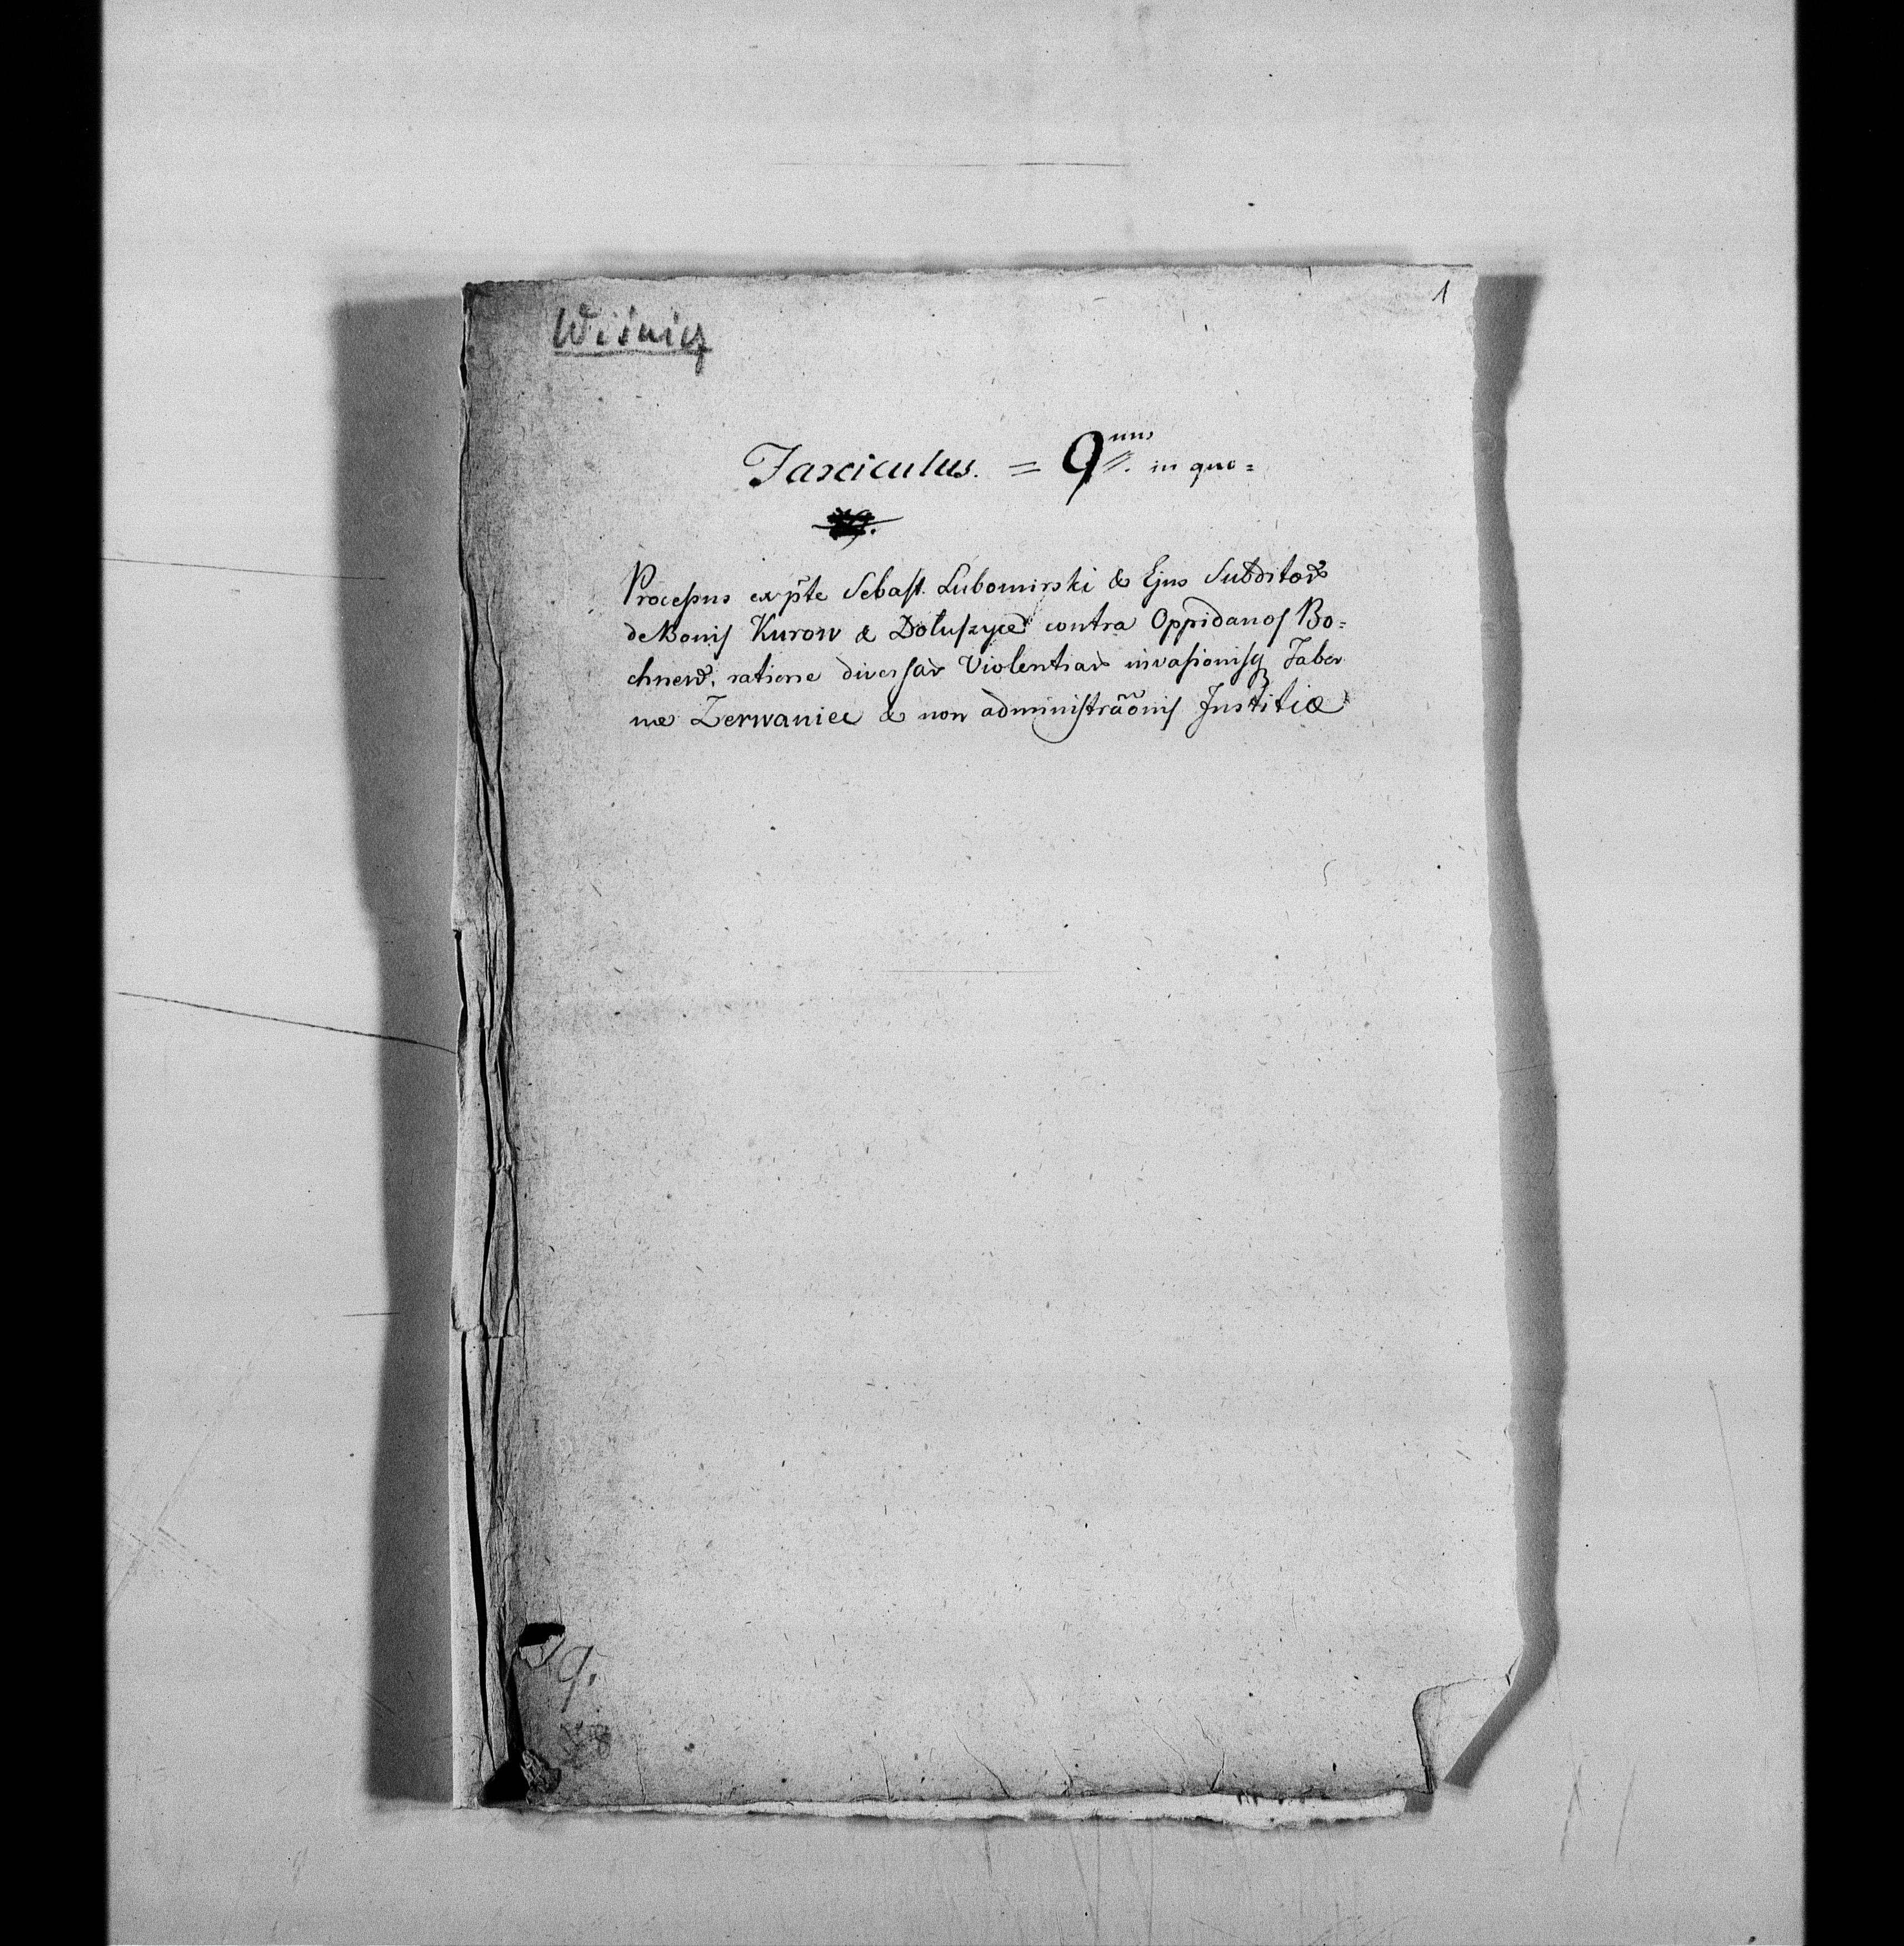 1
Wiśnicz
Fasciculus. = 9nus. in quo =
Processus ex p̃te Sebast. Lubomirski & Ejus Subditor̃
de Bonis Kurow & Dołuszyce contra Oppidanos Bo=
chnen̄. ratione diversar̃ Violentiar̃ invasionisq Taber
næ Zerwaniec & non administrãõnis Justitiæ
9.